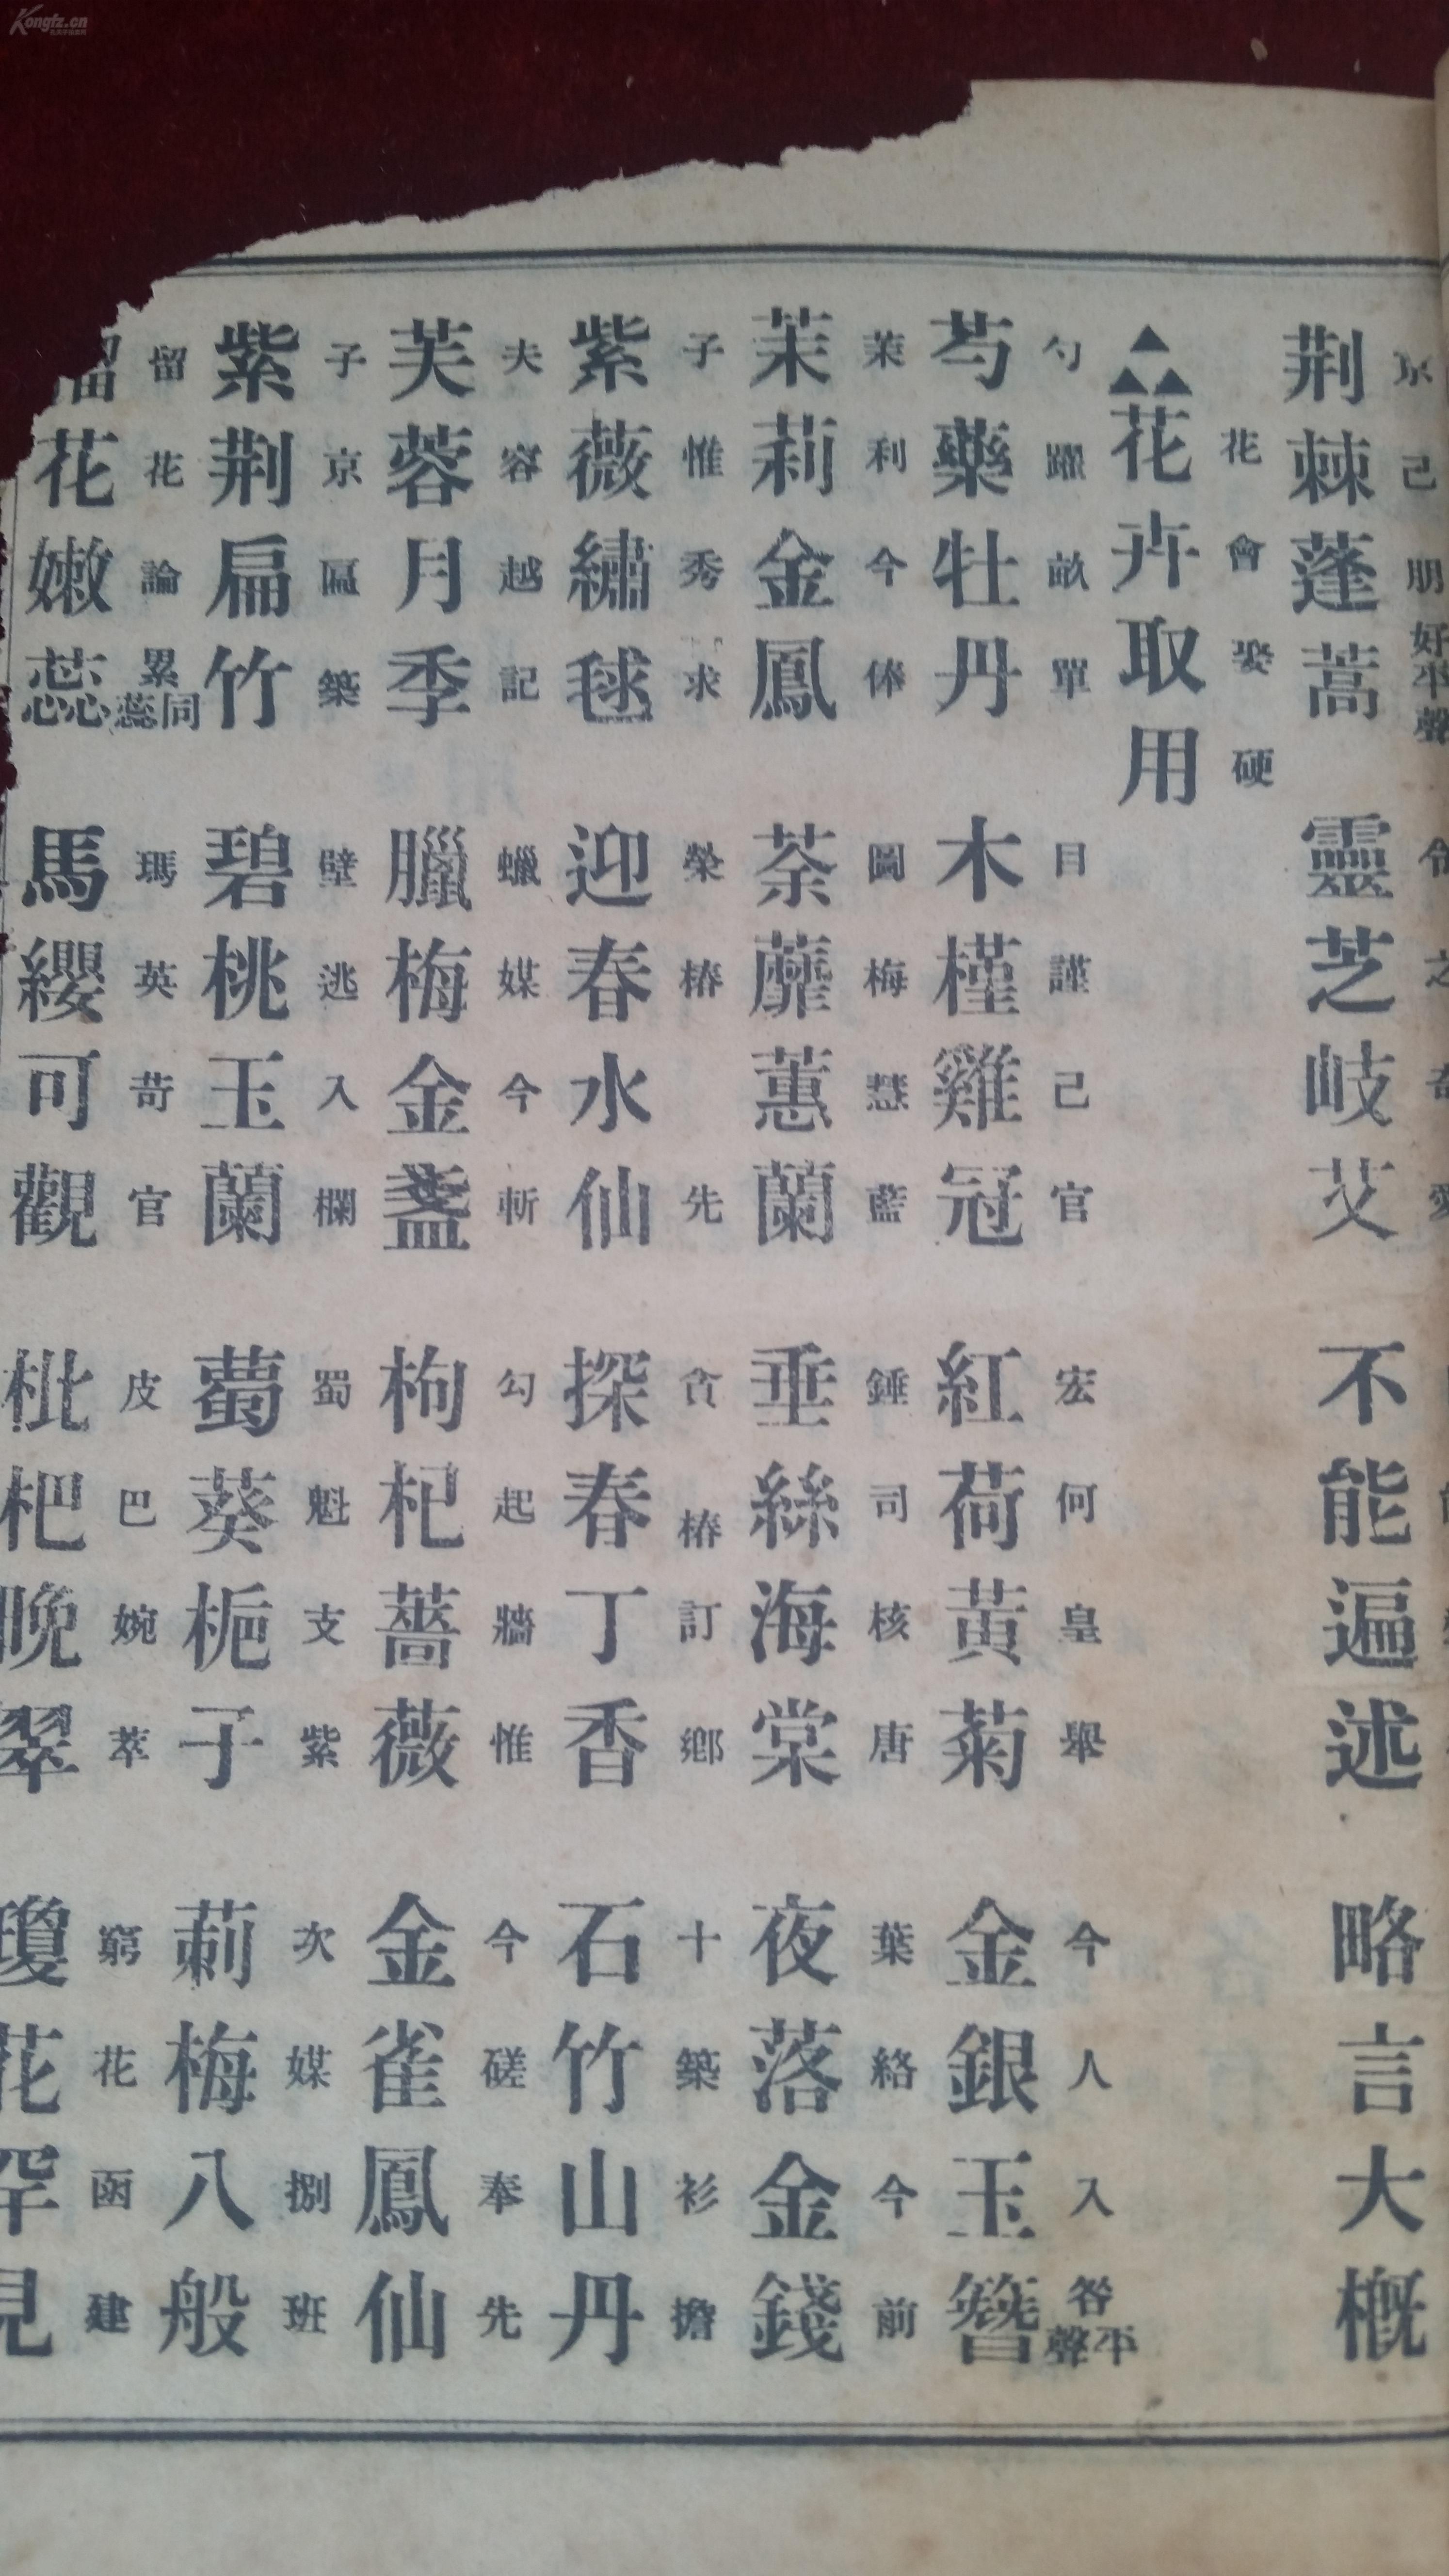 Kongfz.cn
京己朋好平聲
荆棘蓬蒿 靈芝岐艾 不能遍述 略言大概
花會娶硬
花卉取用
勺躍畝單 目謹己官 宏何皇舉 今人入咎平聲
芍藥牡丹 木槿雞冠 紅荷黃菊 金銀玉簪
茉利今俸 圖梅慧藍 錘司核唐 葉絡今前
茉莉金鳳 荼蘼蕙蘭 垂絲海棠 夜落金錢
子惟秀求 榮椿先 貪椿訂鄉 十築衫擔
紫薇繡毬 迎春水仙 探春丁香 石竹山丹
夫容越記 蠟媒今斬 勾起牆惟 今磋奉先
芙蓉月季 臘梅金盞 枸杞薔薇 金雀鳳仙
子京匾築 壁逃入欄 蜀魁支紫 次媒捌班
紫荆扁竹 碧桃玉蘭 蔔葵梔子 莿梅八般
留花論累同蕊 瑪英苛官 皮巴婉萃 窮花函建
花嫩蕊 馬纓可觀 枇杷晚翠 瓊花罕見